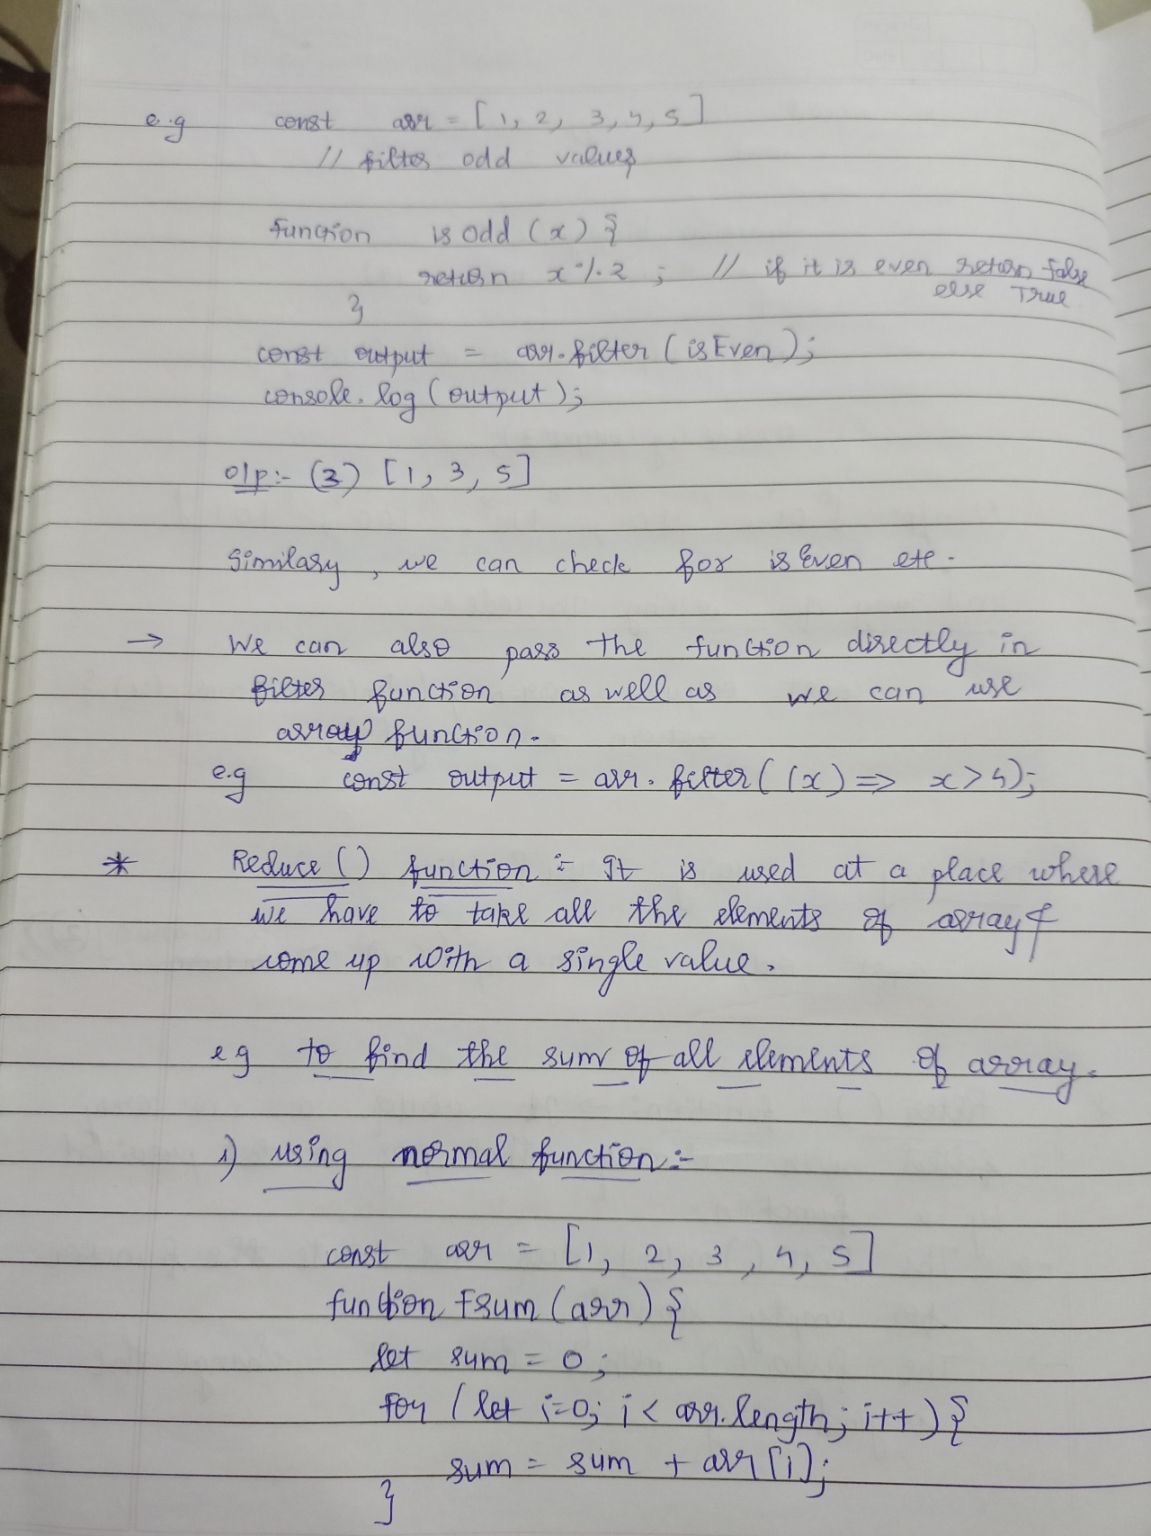 e.g const arr = [1, 2, 3, 4, 5]
// filter odd values
function isodd (x) {
return x % 2 ; // if it is even return false
else True
}
const output = arr.filter (isEven);
console.log (output);
o/p:- (3) [1, 3, 5]
Similary, we can check for is Even etc.
→ We can also pass the function directly in
filter function as well as we can use
array function.
e.g const output = arr.filter ((x) => x > 4);
* Reduce () function :- It is used at a place where
we have to take all the elements of array &
come up with a single value.
eg to find the sum of all elements of array.
i) using normal function :-
const arr = [1, 2, 3, 4, 5]
function Fsum (arr) {
let sum = 0;
for (let i=0; i < arr.length; i++) {
sum = sum + arr [i];
}